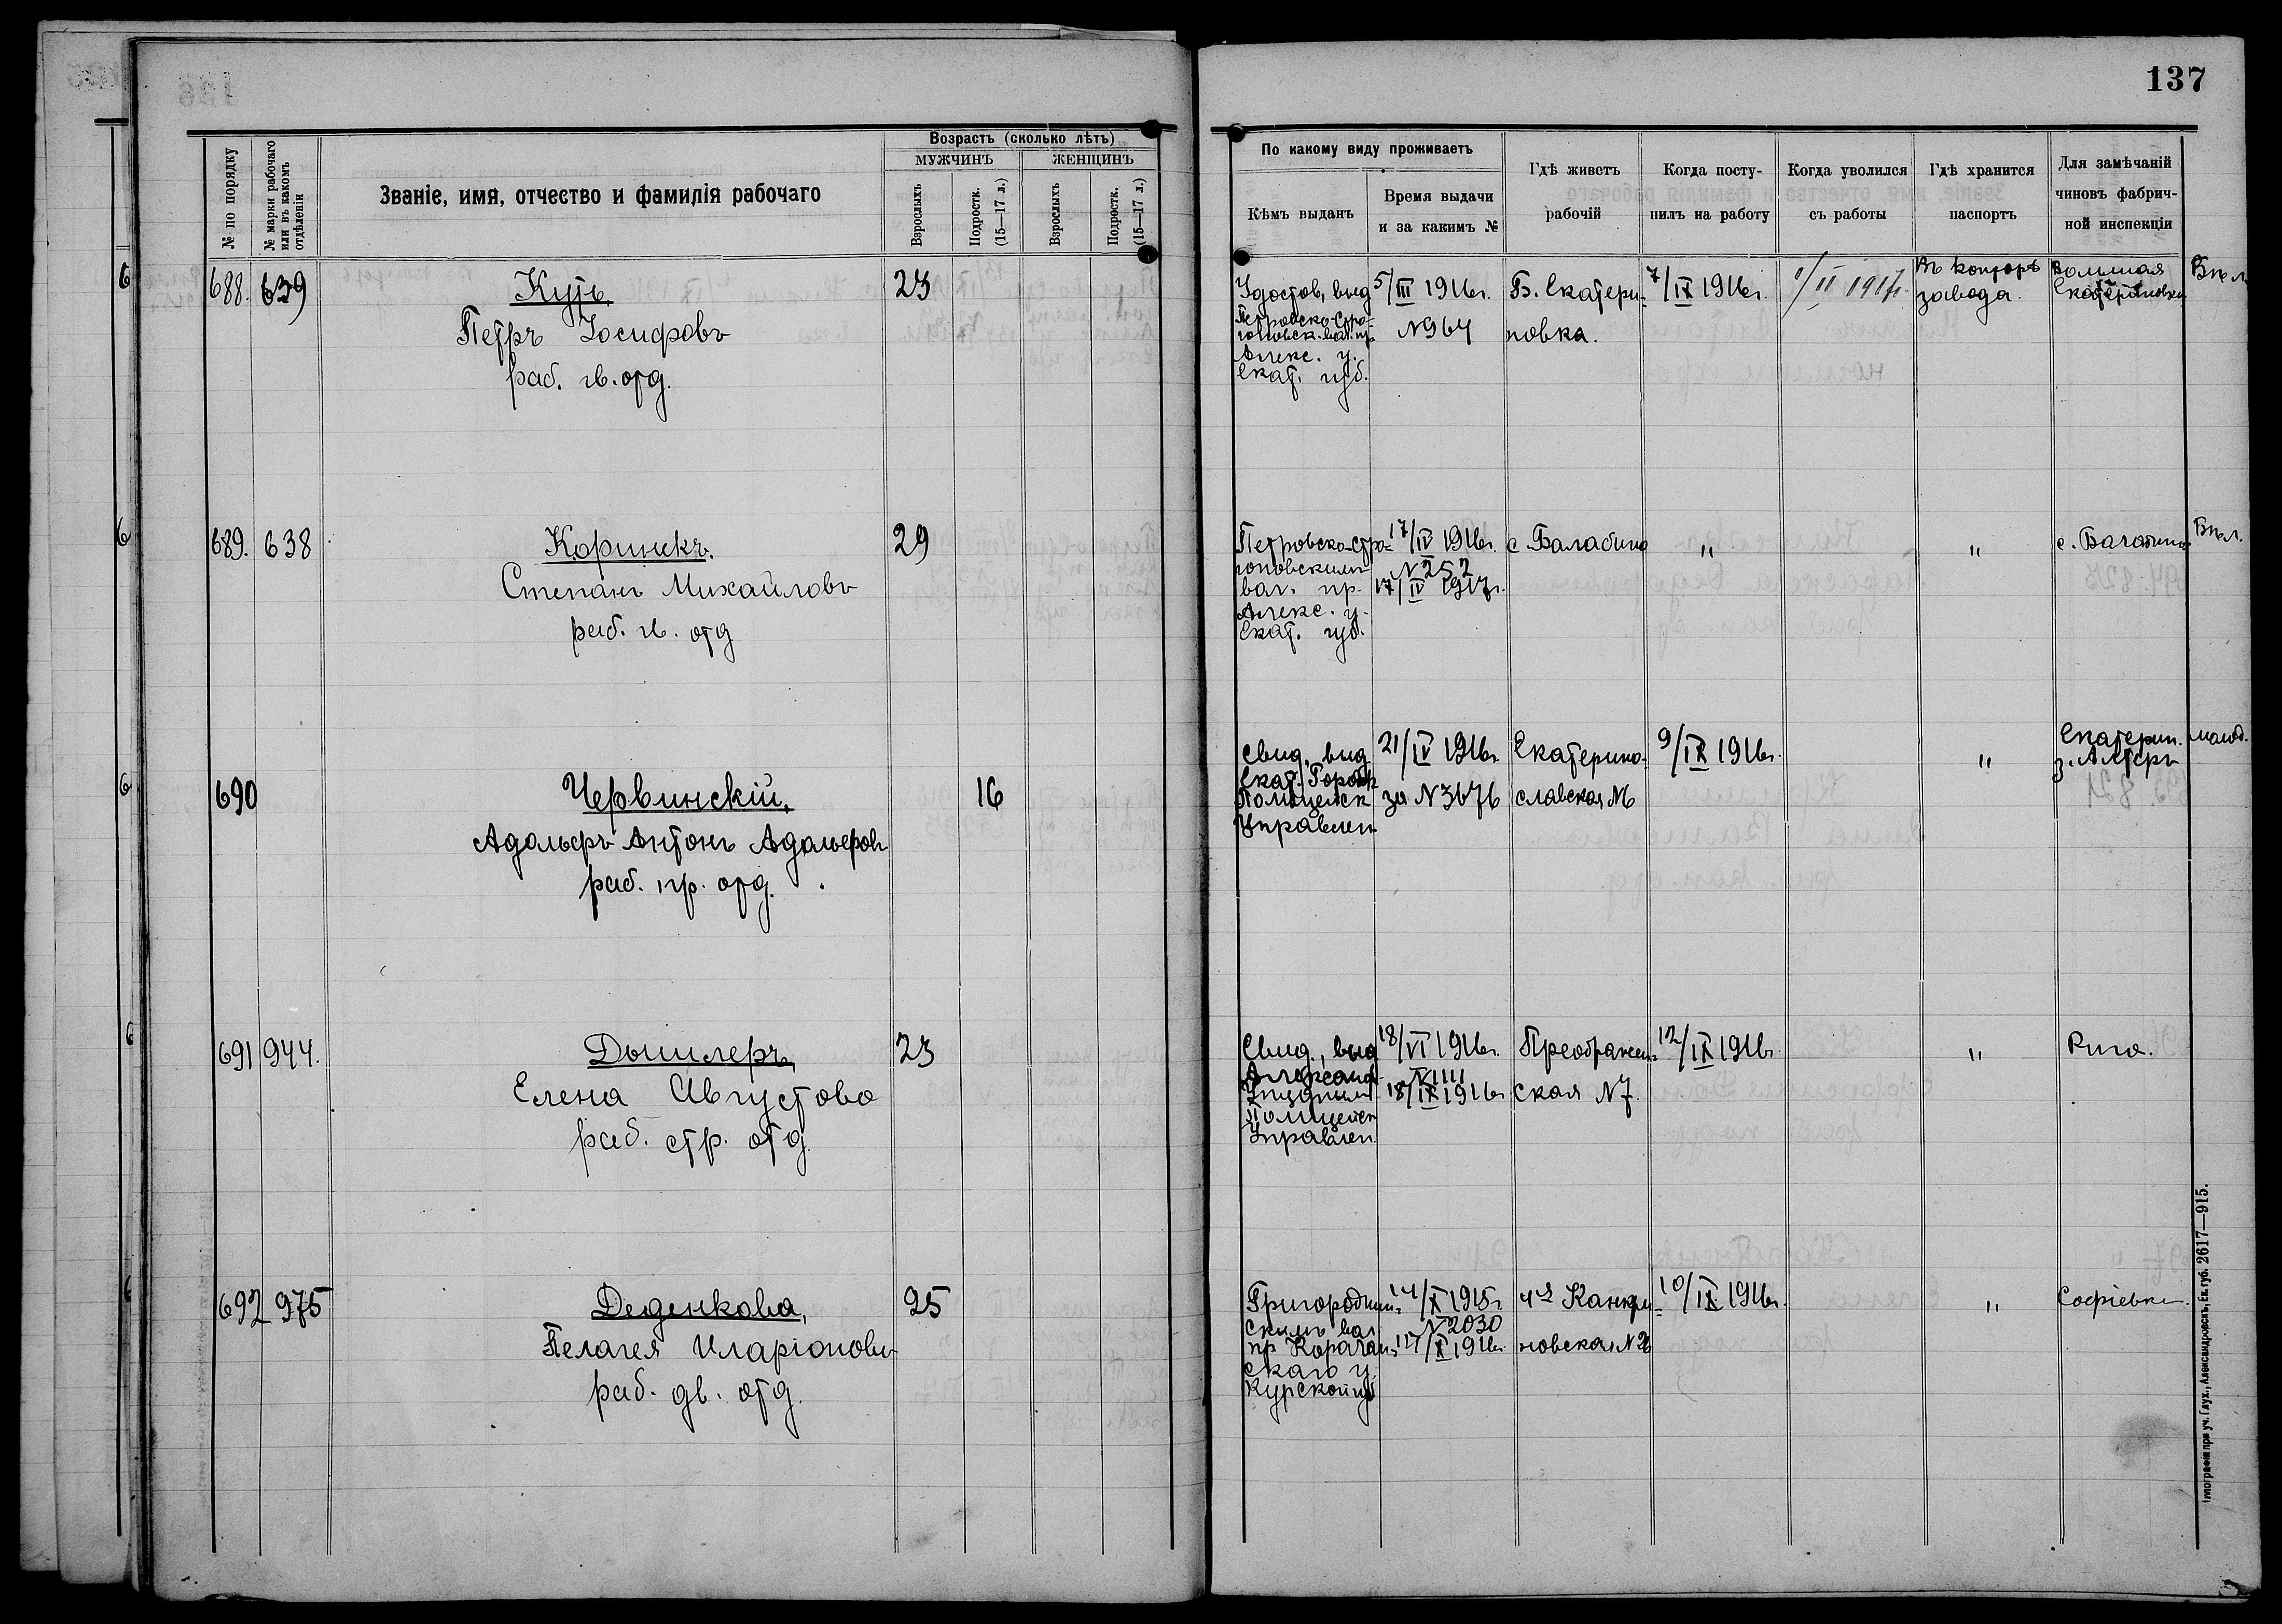 137
№ по порядку
№ марки рабочаго или въ какомъ отдѣленіи
Званіе, имя, отчество и фамилія рабочаго
Возрастъ (сколько лѣтъ)
МУЖЧИНЪ
ЖЕНЩИНЪ
Взрослыхъ
Подростк. (15—17 л.)
Взрослыхъ
Подростк. (15—17 л.)
По какому виду проживаетъ
Кѣмъ выданъ
Время выдачи
и за какимъ №
Гдѣ живетъ
рабочій
Когда посту-
пилъ на работу
Когда уволился
съ работы
Гдѣ хранится
паспортъ
Для замѣчаній
чиновъ фабрич-
ной инспекціи
688. 639
Куть
Петръ Іосифовъ
раб. гв. отд.
23
Удостов, выд
Петровско-Сво-
Алекс. у.
Екат. губ.
5/III 1916г.
№964
Б. Екатери-
новка.
7/IX 1916г.
1/II 1917г.
Въ конторѣ
завода.
Большая
Екатериновка
689. 638
Коринекъ.
Степанъ Михайловъ
раб. гв. отд
29
вол. пр.
Алекс. у.
Екат. губ.
17/IV 1916г.
№252
17/IV 1917г.
с. Балабино
"
"
с. Балабино
690
Червинскій,
Адольфъ Антонъ Адольфовъ
раб. пр. отд.
16
Свид, выд
Екат. Городск
Полицейск
Управлен
21/IV 1916г.
за №3676
Екатерино-
славская №6
9/IX 1916г.
"
Екатерин.
691 944.
Елена Августова
раб. стр. отд
23
Свид., выд
Александ
Уѣзднымъ
Полицейск
Управлен
18/VI 1916г.
№1111
18/IX 1916г
Преображен-
ская №7
12/IX 1916г.
"
Рига.
692 975
Деденкова,
Пелагея Иларіонови
раб. дв. отд.
25
Пригородним-
скимъ вол.
пр Корочан-
скаго у.
Курской губ
14/X 1915г.
№2030
10/IX 1916г.
"
Софіевка.
Типографія при уч. Глух., Александровскъ, Ек. губ. 2617—915.